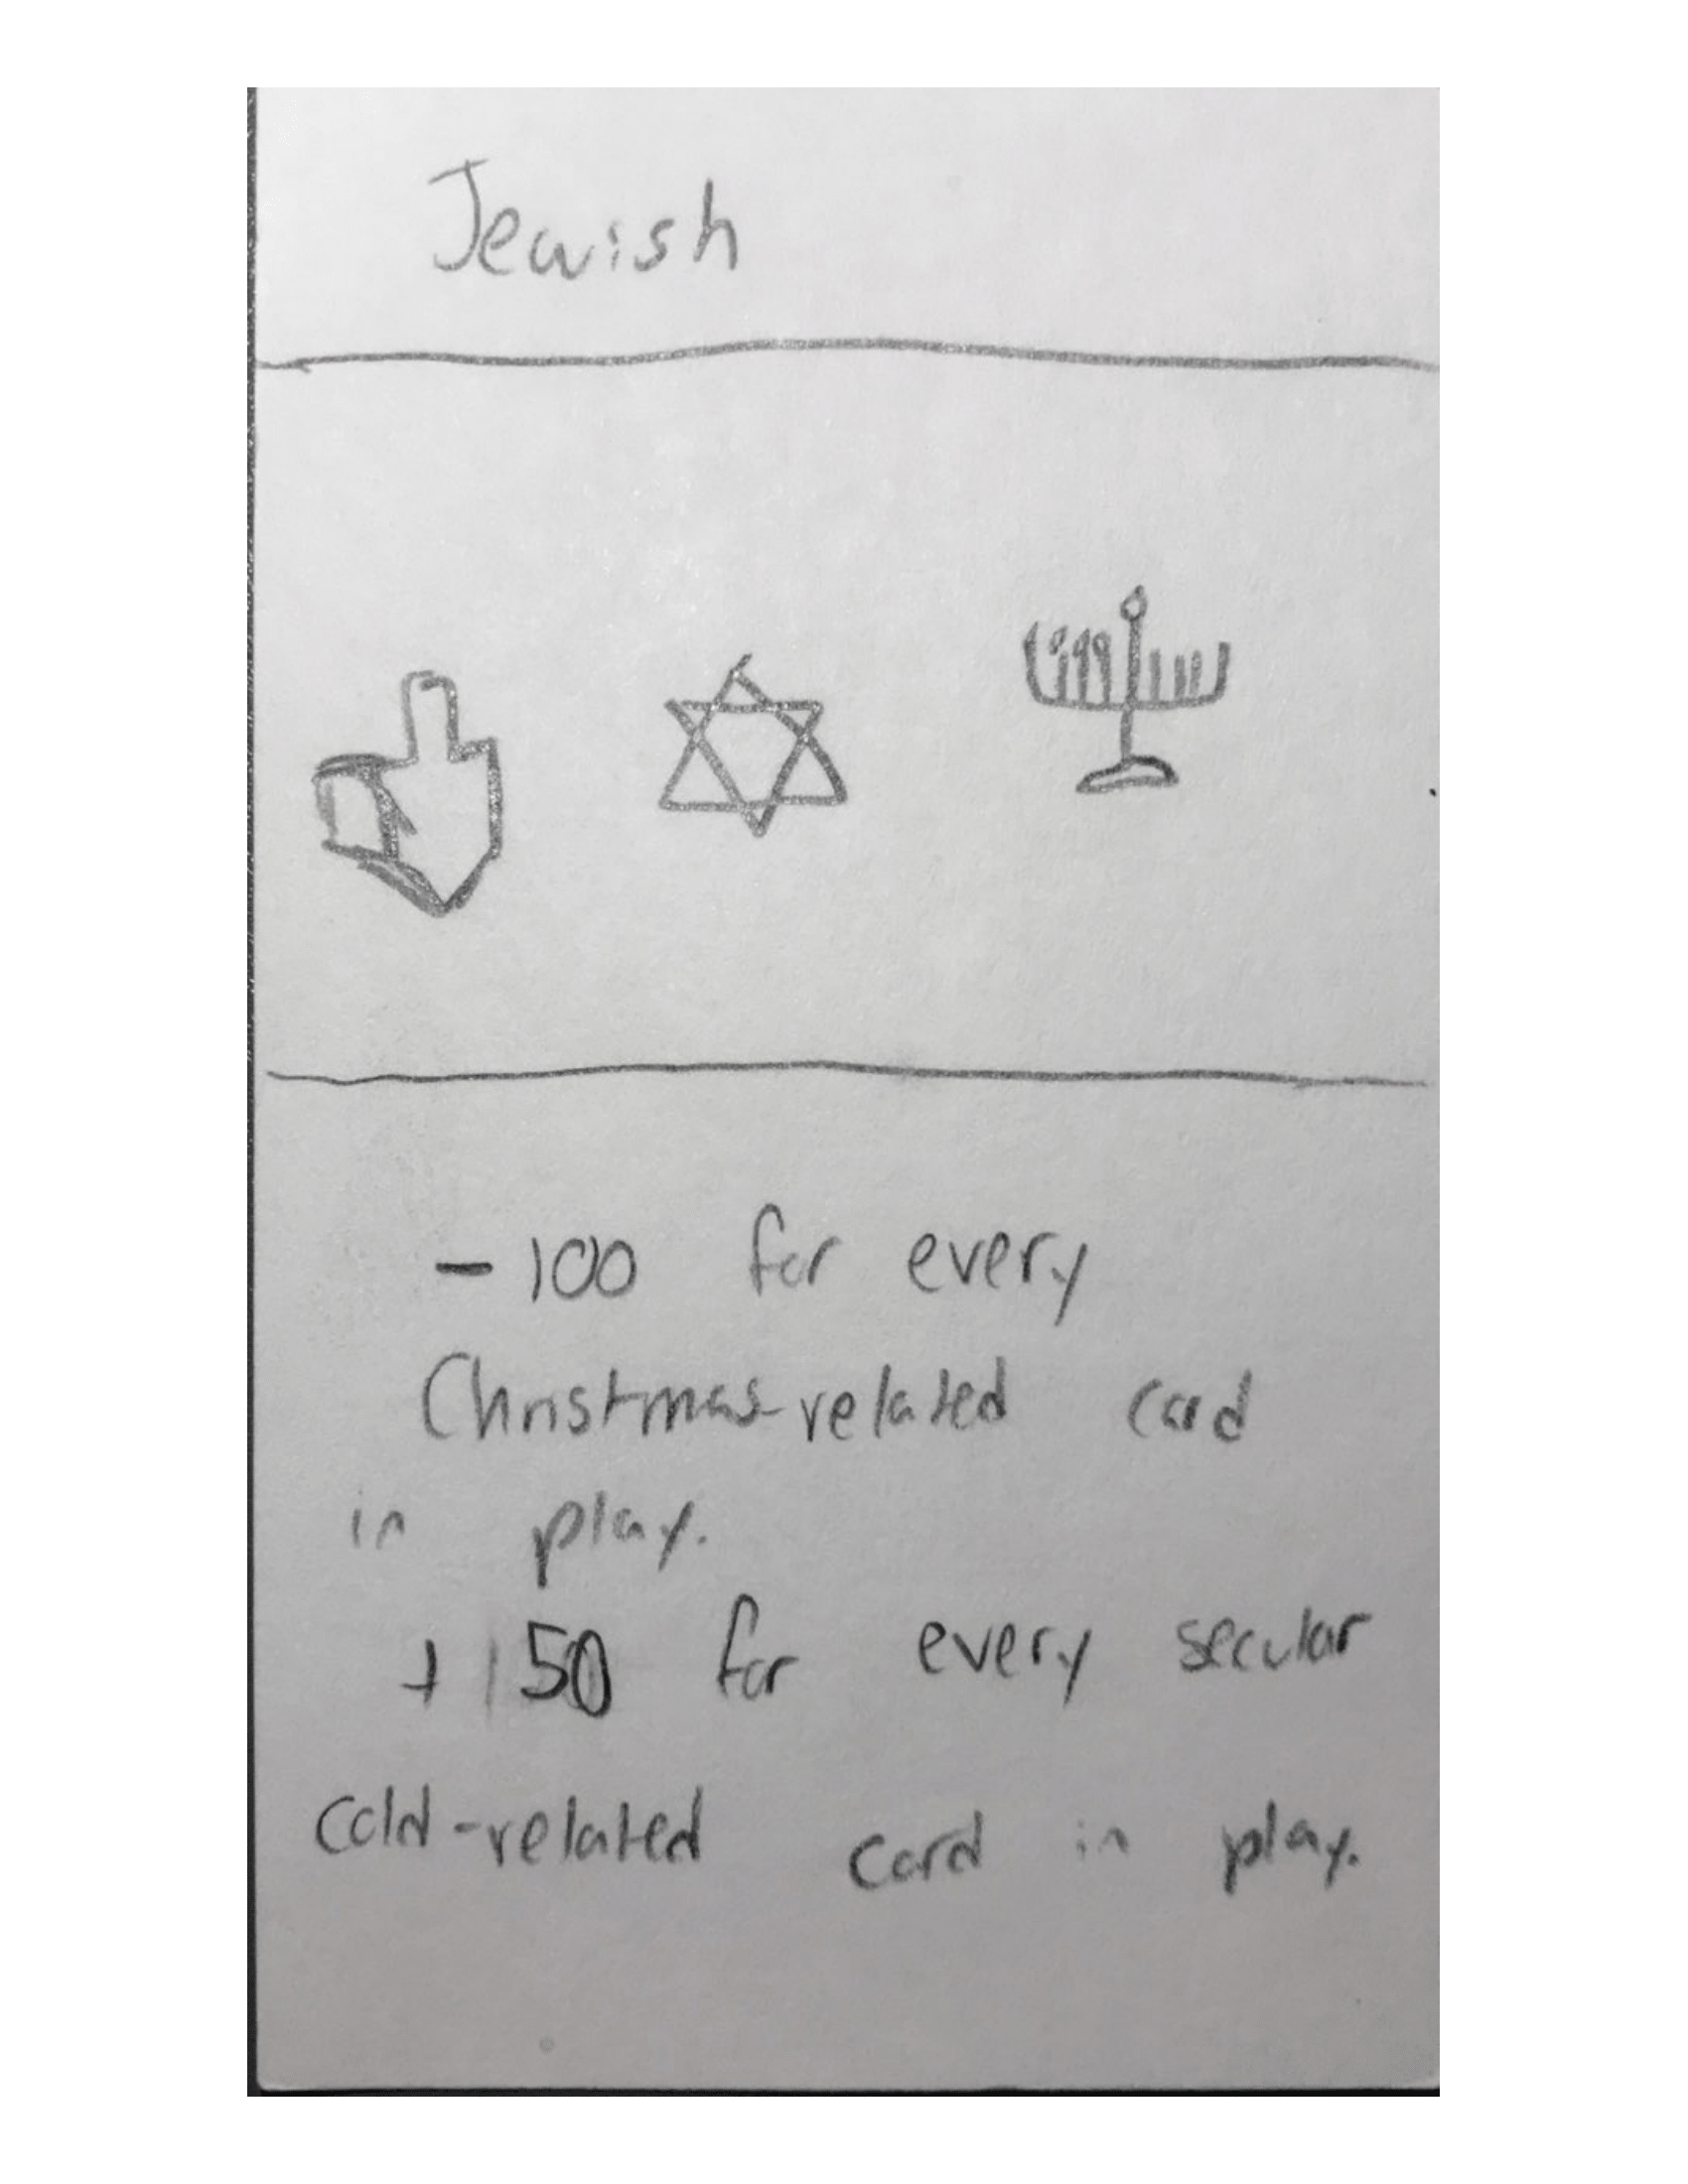 Jewish
- 100 for every
Christmas-related card
in play.
+ 50 for every secular
cold-related card in play.